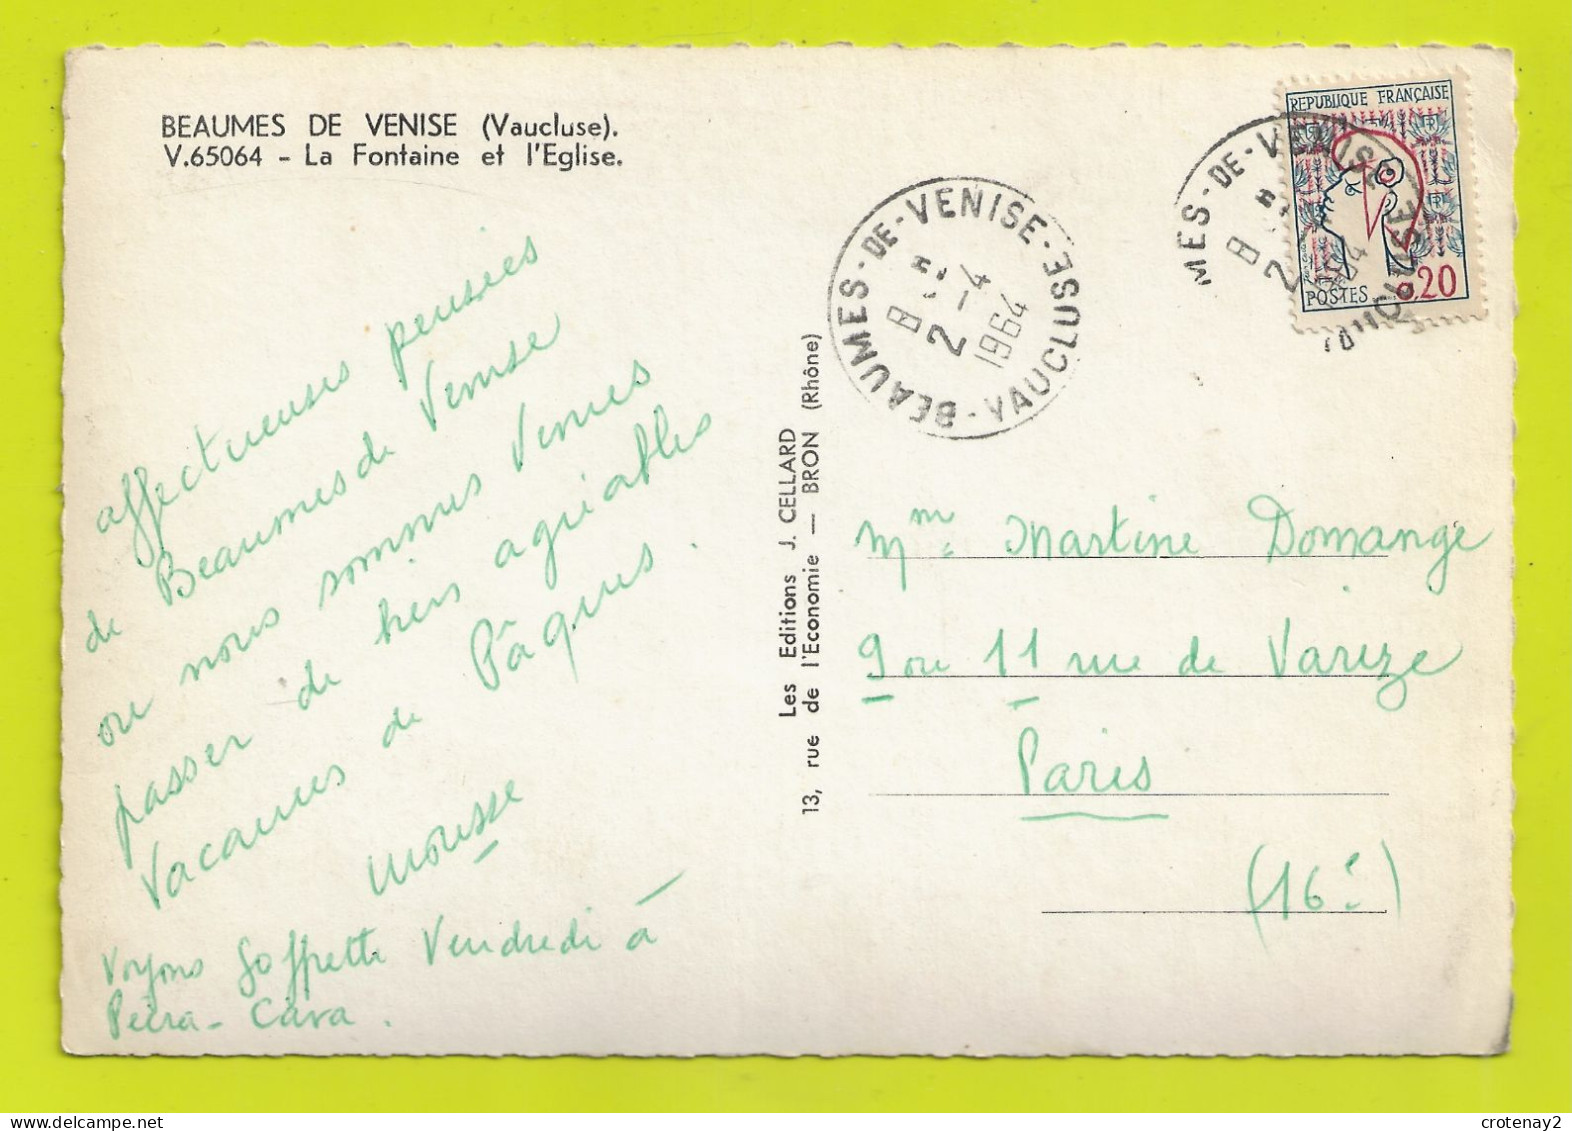 BEAUMES DE VENISE (Vaucluse).
V.65064 - La Fontaine et l'Eglise.
affectueuses pensées
de Beaumes de Venise
ou nous sommes Venues
passer de très agréables
Vacances de Pâques.
Mousse
Voyons Goffrette Vendredi à
Peïra-Cava.
Les Editions J. CELLARD
13, rue de l'Economie — BRON (Rhône)
BEAUMES-DE-VENISE-VAUCLUSE
8 H
2-4
1964
MES-DE-VENISE
VAUCLUSE
8 H
2
REPUBLIQUE FRANÇAISE
POSTES 0,20
Mme Martine Domange
9 ou 11 rue de Varize
Paris
(16e)
crotenay2